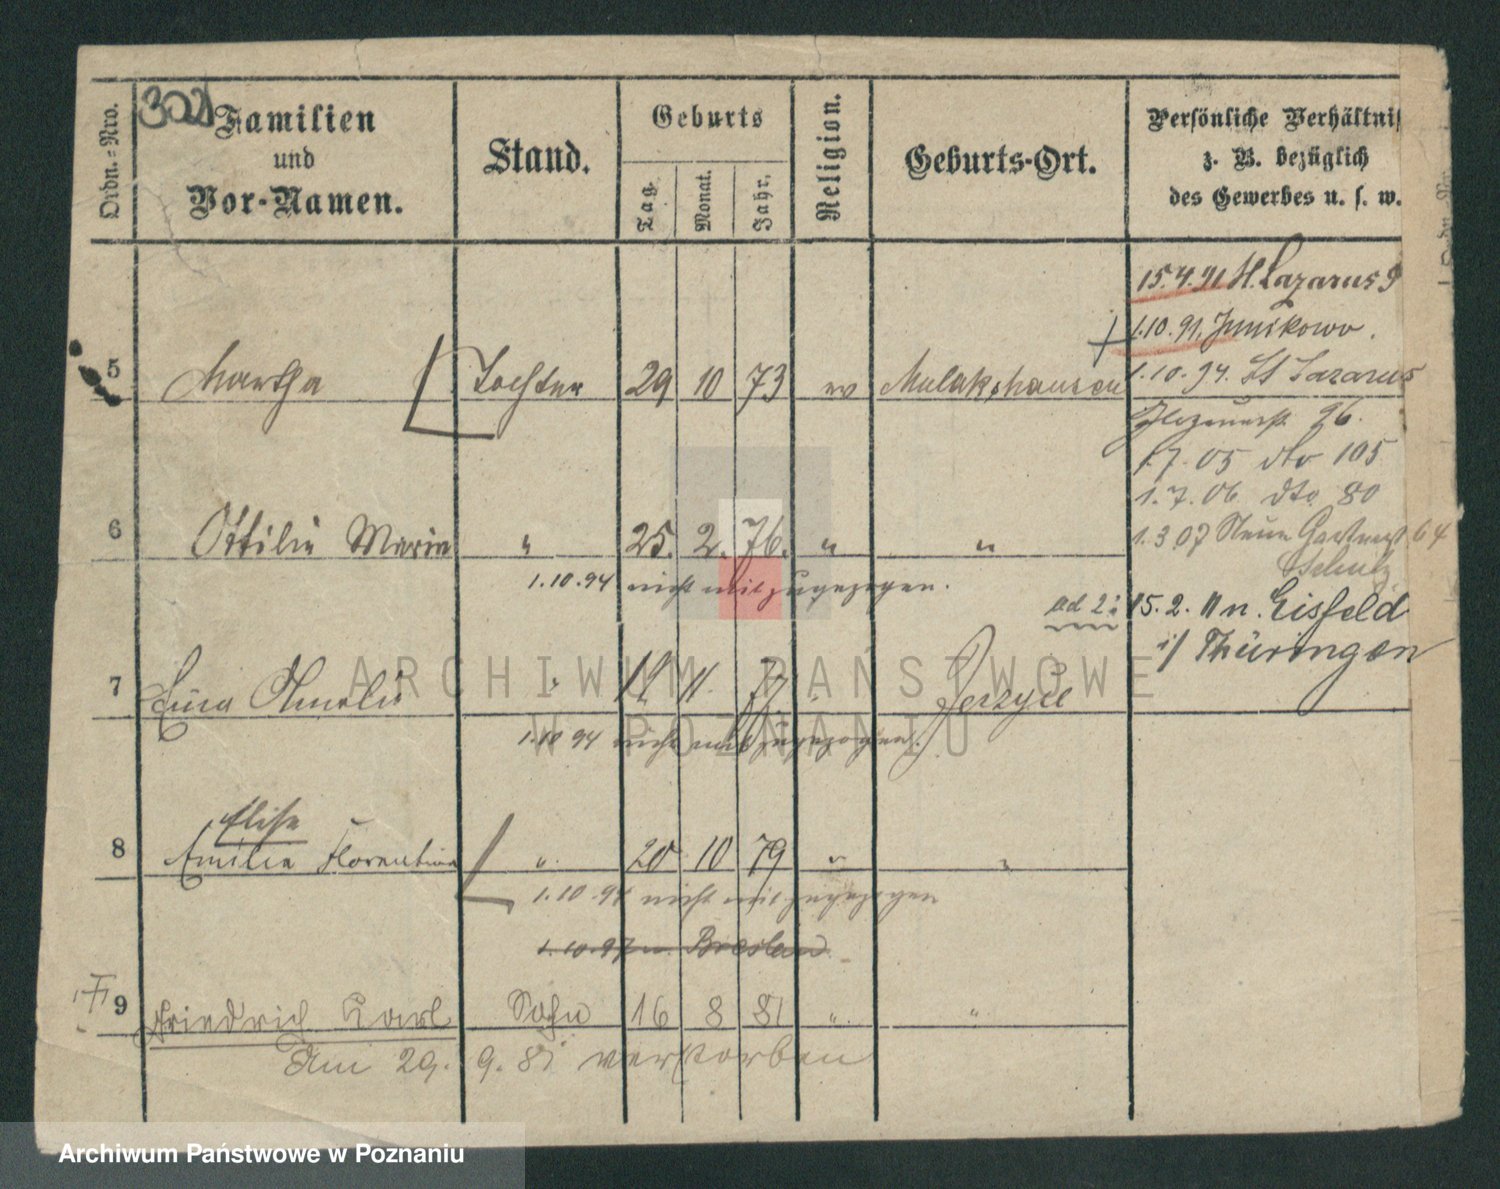 302
Ordn.-Nro.
Familien
und
Vor-Namen.
Stand.
Geburts
Tag.
Monat.
Jahr.
Religion.
Geburts-Ort.
Persönliche Verhältnis
z. B. bezüglich
des Gewerbes u. s. w.
15.4.91 St. Lazarus 9
1.10.91. Junikowo.
5 Martha Tochter 29 10 73 ev Mulakshausen
1.10.94. St Lazarus
96.
1.7.05 dto 105
1.7.06 dto 80
6 Ottilie Maria " 25. 2. 76. " "
1.3 07 Neue Gartenst 64
Schulz
1.10.94 nicht mitzugezogen.
ad 2: 15.2.11 n. Eisfeld
i/ Thüringen
7 Amalie " 11. 77 " Jerzyce
1.10 94 nicht mitzugezogen.
Elise
8 Emilie Florentine " 20 10 79 " "
1.10.94 nicht mitzugezogen
1.10.97 n. Breslau
9 Friedrich Karl Sohn 16 8 81 " "
Am 29. 9. 81 verstorben
ARCHIWUM PAŃSTWOWE
W POZNANIU
Archiwum Państwowe w Poznaniu